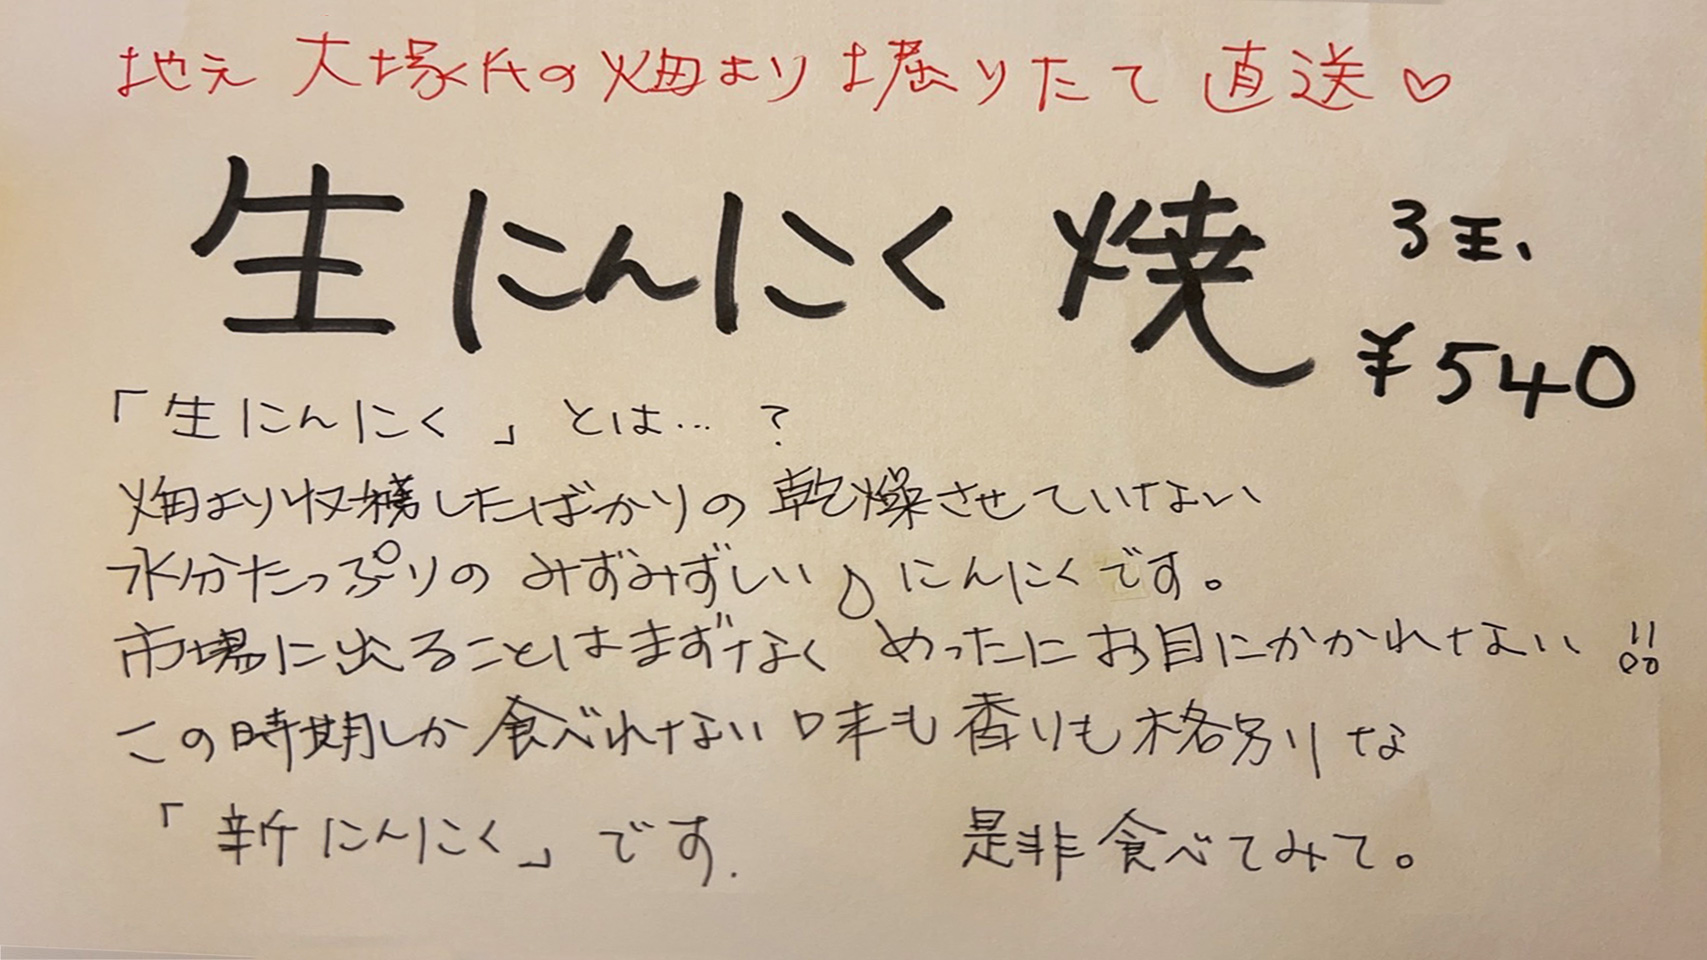 地元 大塚氏の畑より 掘りたて 直送♡
生にんにく 焼 3玉、
¥540
「生にんにく」とは…?
畑より収穫したばかりの 乾燥させていない
水分たっぷりの みずみずしい にんにくです。
市場に出ることはまずなく めったにお目にかかれない!!
この時期しか食べれない味も香りも格別りな
「新にんにく」です. 是非食べてみて。